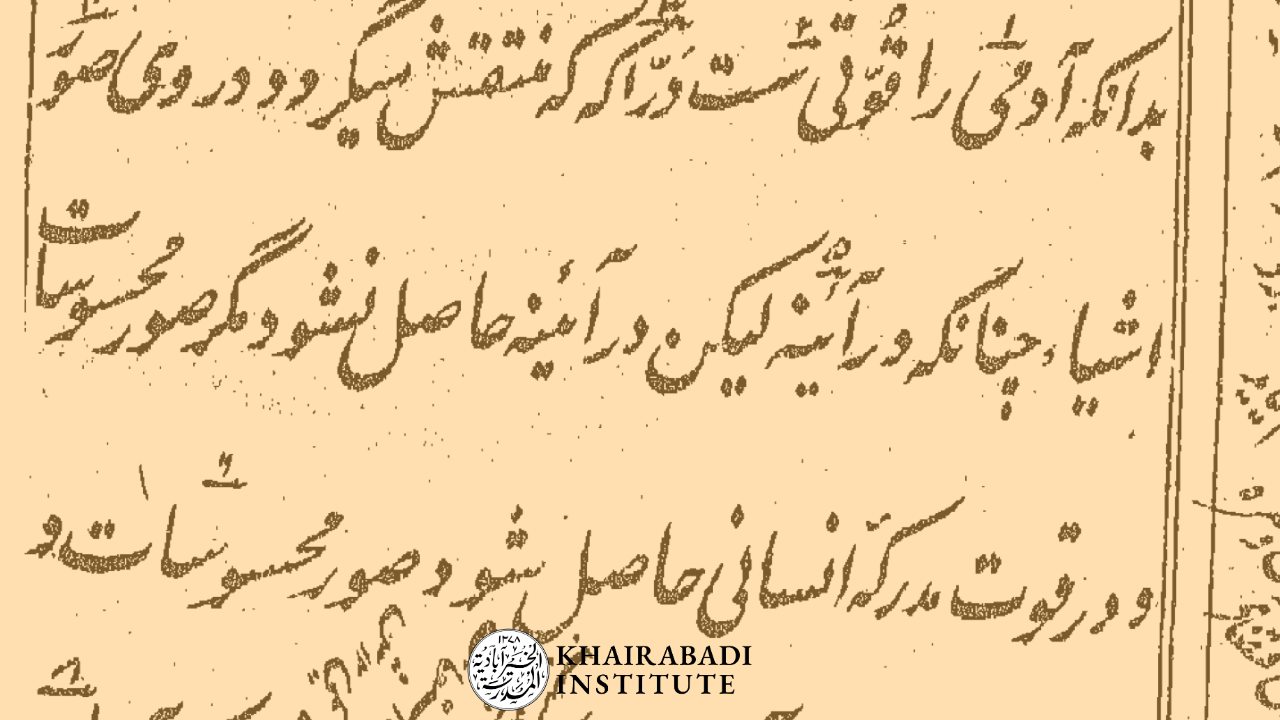 بدانکه آدمی را قوّتی ست درّاکه که منتقش میگردد در وی صور
اشیاء چنانکه در آئینه لیکن در آئینه حاصل نشود مگر صور محسوسات
و در قوت مدرکه انسانی حاصل شود صور محسوسات و
۱۲۷۸
KHAIRABADI
INSTITUTE